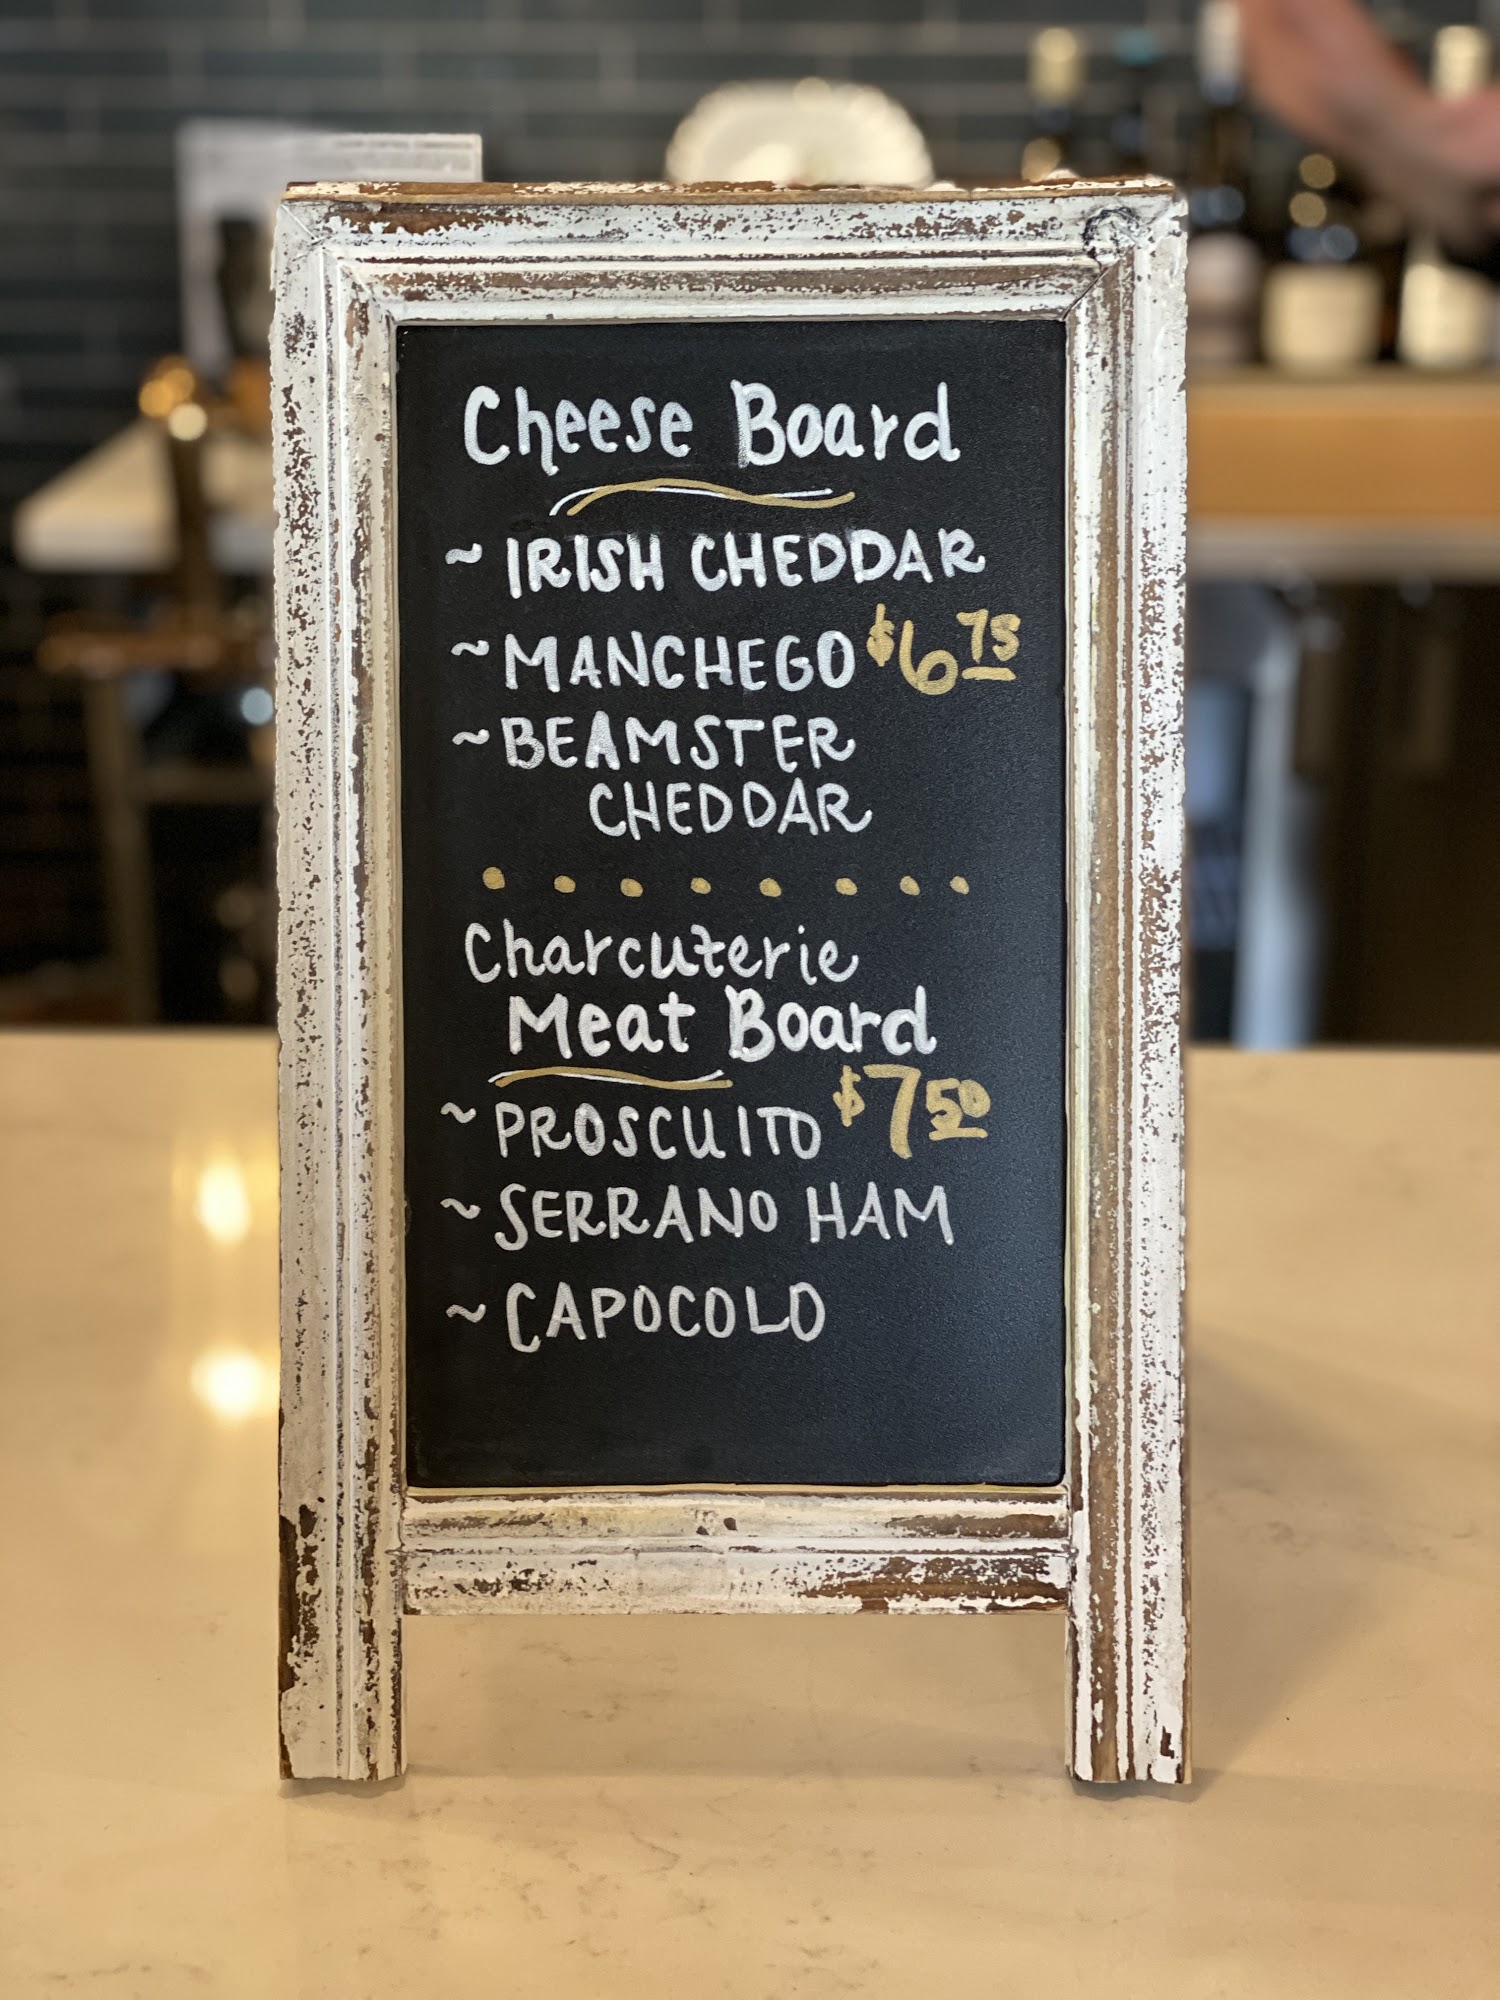 Cheese Board
~ IRISH CHEDDAR
~ MANCHEGO $6 75
~ BEAMSTER
CHEDDAR
Charcuterie
Meat Board
~ PROSCUITO $7 50
~ SERRANO HAM
~ CAPOCOLO